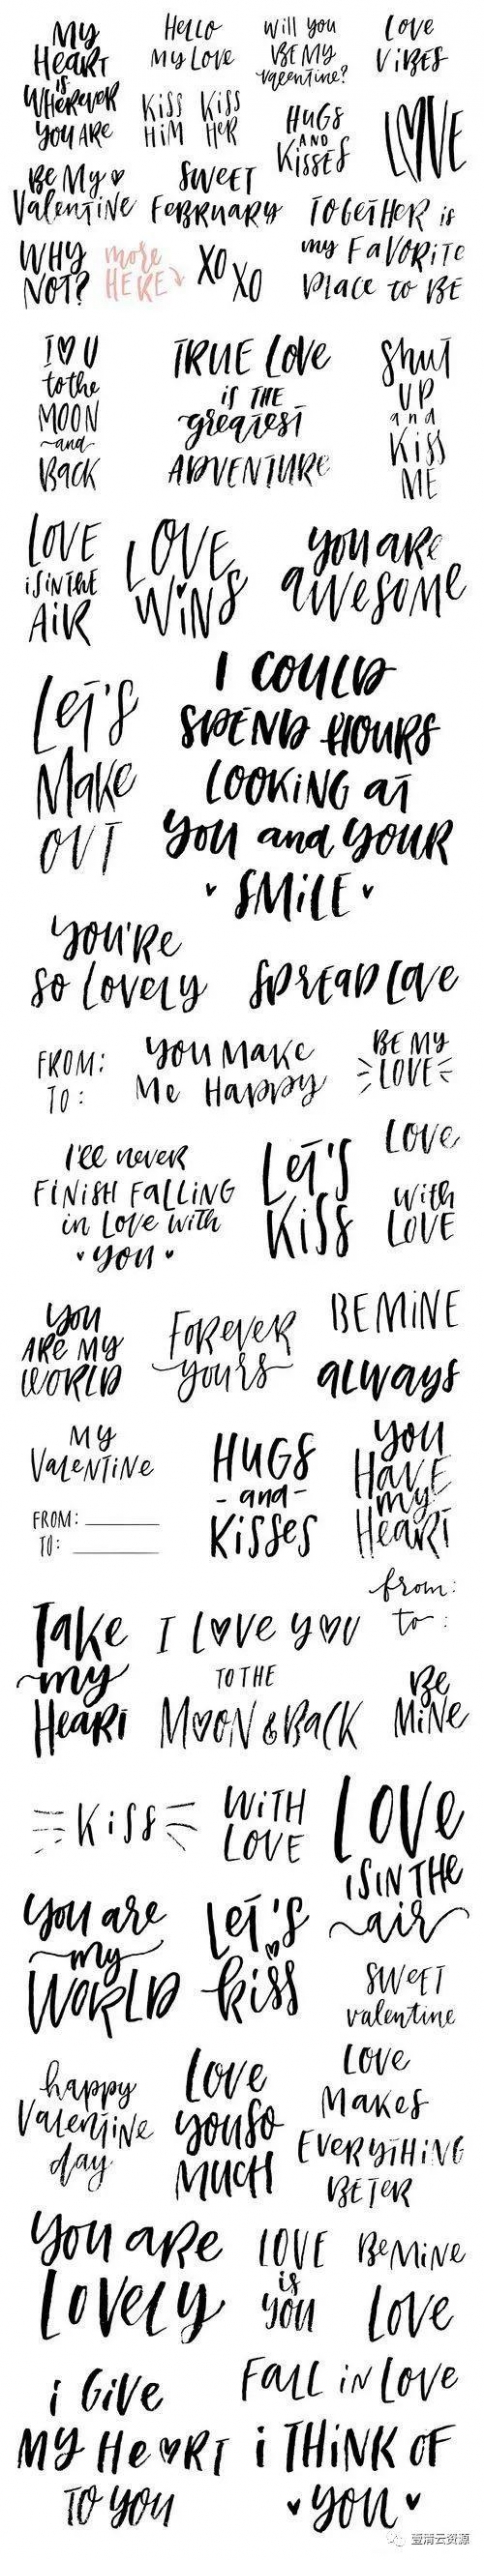 MY
HEART
is
WHEREVER
YOU ARE
HELLO
MY LOVE
will you
BE MY
valentine?
Love
VIBES
KISS
HIM
KISS
HER
HUGS
AND
KISSES
LOVE
Be My
Valentine
SWEET
FEBRUARY
TOGETHER is
my FAVORITE
Place to BE
WHY
NOT?
more
HERE
XO
XO
I U
to the
MOON
and
BACK
TRUE Love
is THE
greatest
ADVENTURE
Shut
UP
and
Kiss
ME
LOVE
is in the
AIR
LOVE
WINS
you are
awesome
Let's
Make
OUT
I COULD
SPEND HOURS
LOOKING at
you and your
SMILE
you're
so lovely
SPREAD Love
FROM:
TO:
you make
Me Happy
BE MY
LOVE
I'll never
FINISH FALLING
in Love with
you
Let's
Kiss
Love
with
LOVE
you
ARE MY
WORLD
Forever
yours
BE MINE
always
MY
Valentine
FROM:
TO:
HUGS
- and -
Kisses
you
Have
my
Heart
from:
to:
Take
my
Heart
I Love you
TO THE
MOON & BACK
Be
Mine
Kiss
WITH
LOVE
LOVE
IS IN THE
air
you are
my
WORLD
Let's
kiss
SWEET
valentine
happy
Valentine
day
Love
you so
MUCH
Love
Makes
EVERYTHING
BETER
you are
Lovely
LOVE
is
you
Be Mine
Love
i Give
MY HeaRT
TO you
FALL in Love
i THINK OF
you
萱清云资源